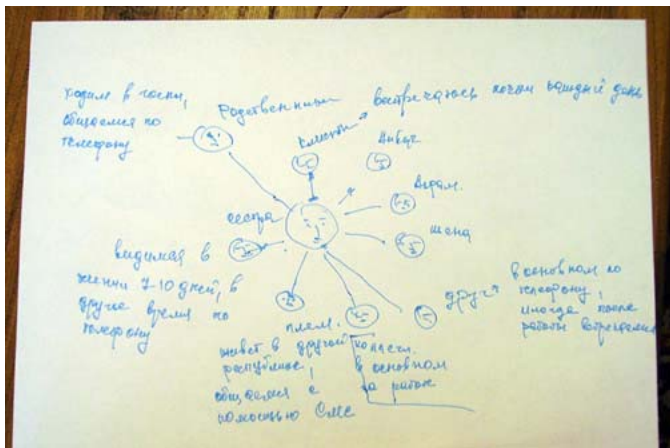 ходим в гости,
общаемся по
телефону
Родственники
клиенты
встречаюсь почти каждый день
Адам.
жена
сестра
видимся в
7-10 дней, в
другое время по
телефону
друг
в основном по
телефону,
иногда после
работы встречаемся
плем.
живет в другой
республике,
общаемся с
помощью СМС
в основном